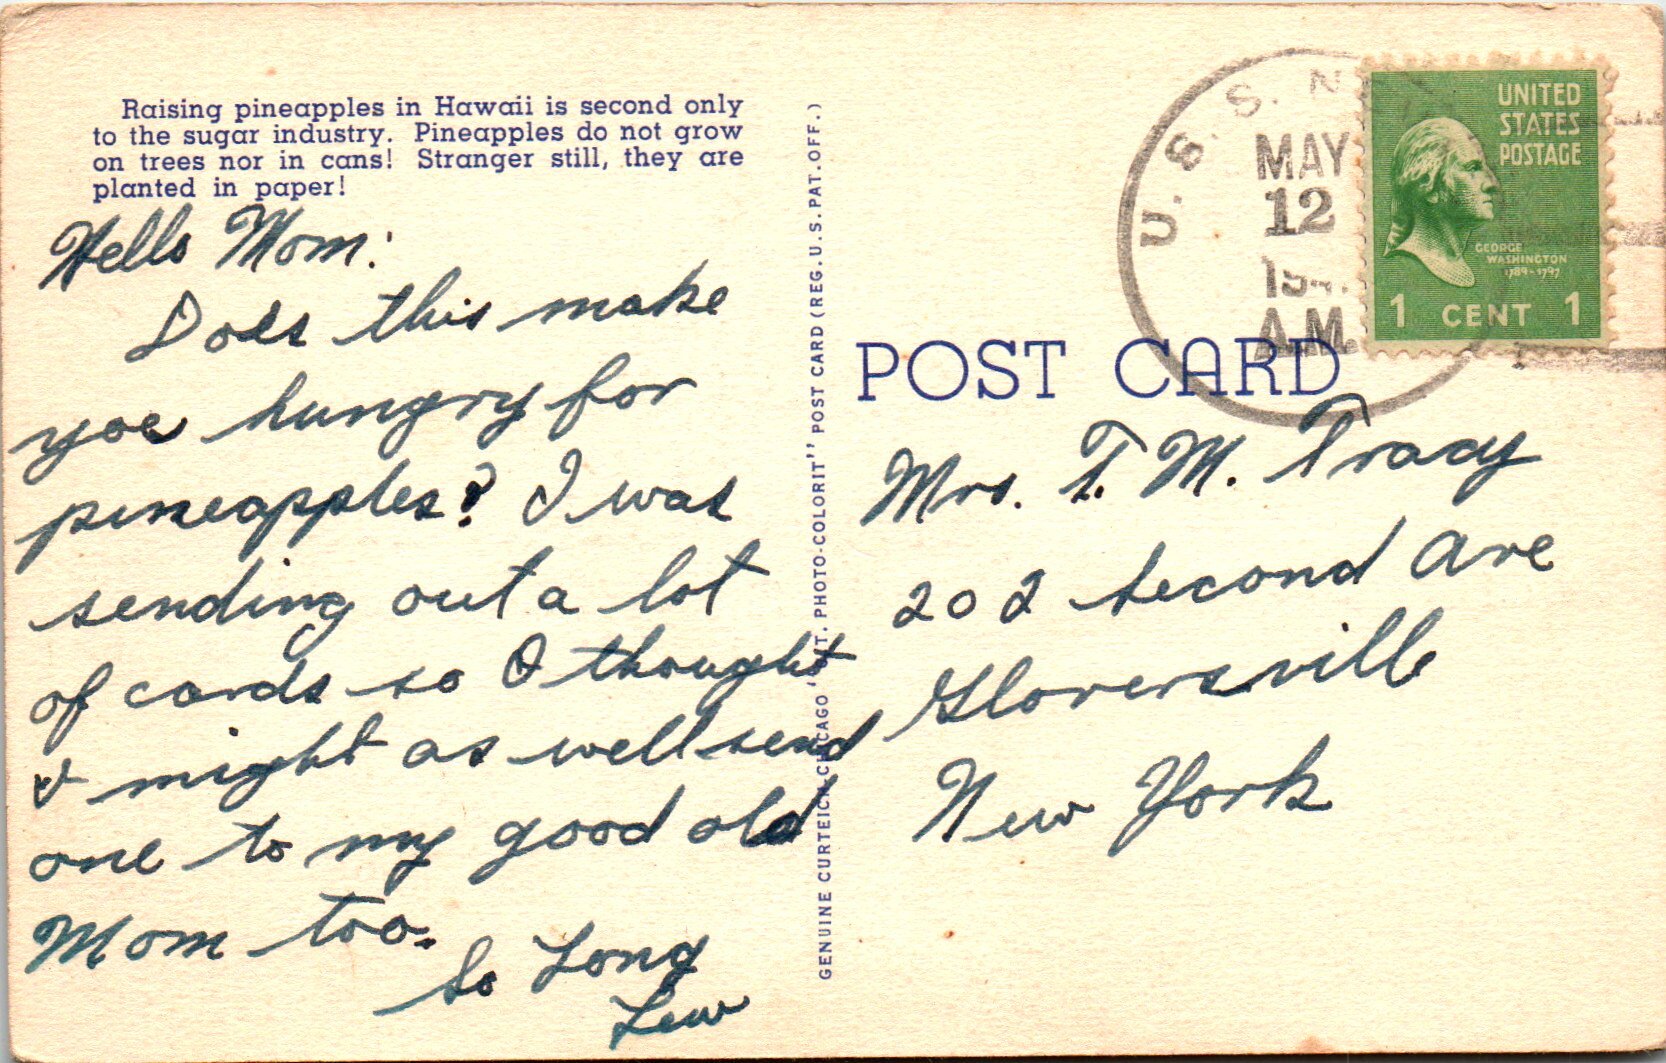 Raising pineapples in Hawaii is second only
to the sugar industry. Pineapples do not grow
on trees nor in cans! Stranger still, they are
planted in paper!
Hello Mom:
Does this make
you hungry for
pineapples? I was
sending out a lot
of cards so I thought
I might as well send
one to my good old
Mom too.
So Long
Lew
GENUINE CURTEICH-CHICAGO "C.T. PHOTO-COLORIT" POST CARD (REG. U.S. PAT. OFF.)
POST CARD
U.S.S. N
MAY
12
A.M.
UNITED
STATES
POSTAGE
GEORGE
WASHINGTON
1789-1797
1 CENT 1
Mrs. T. M. Tracy
202 Second Ave
Gloversville
New York